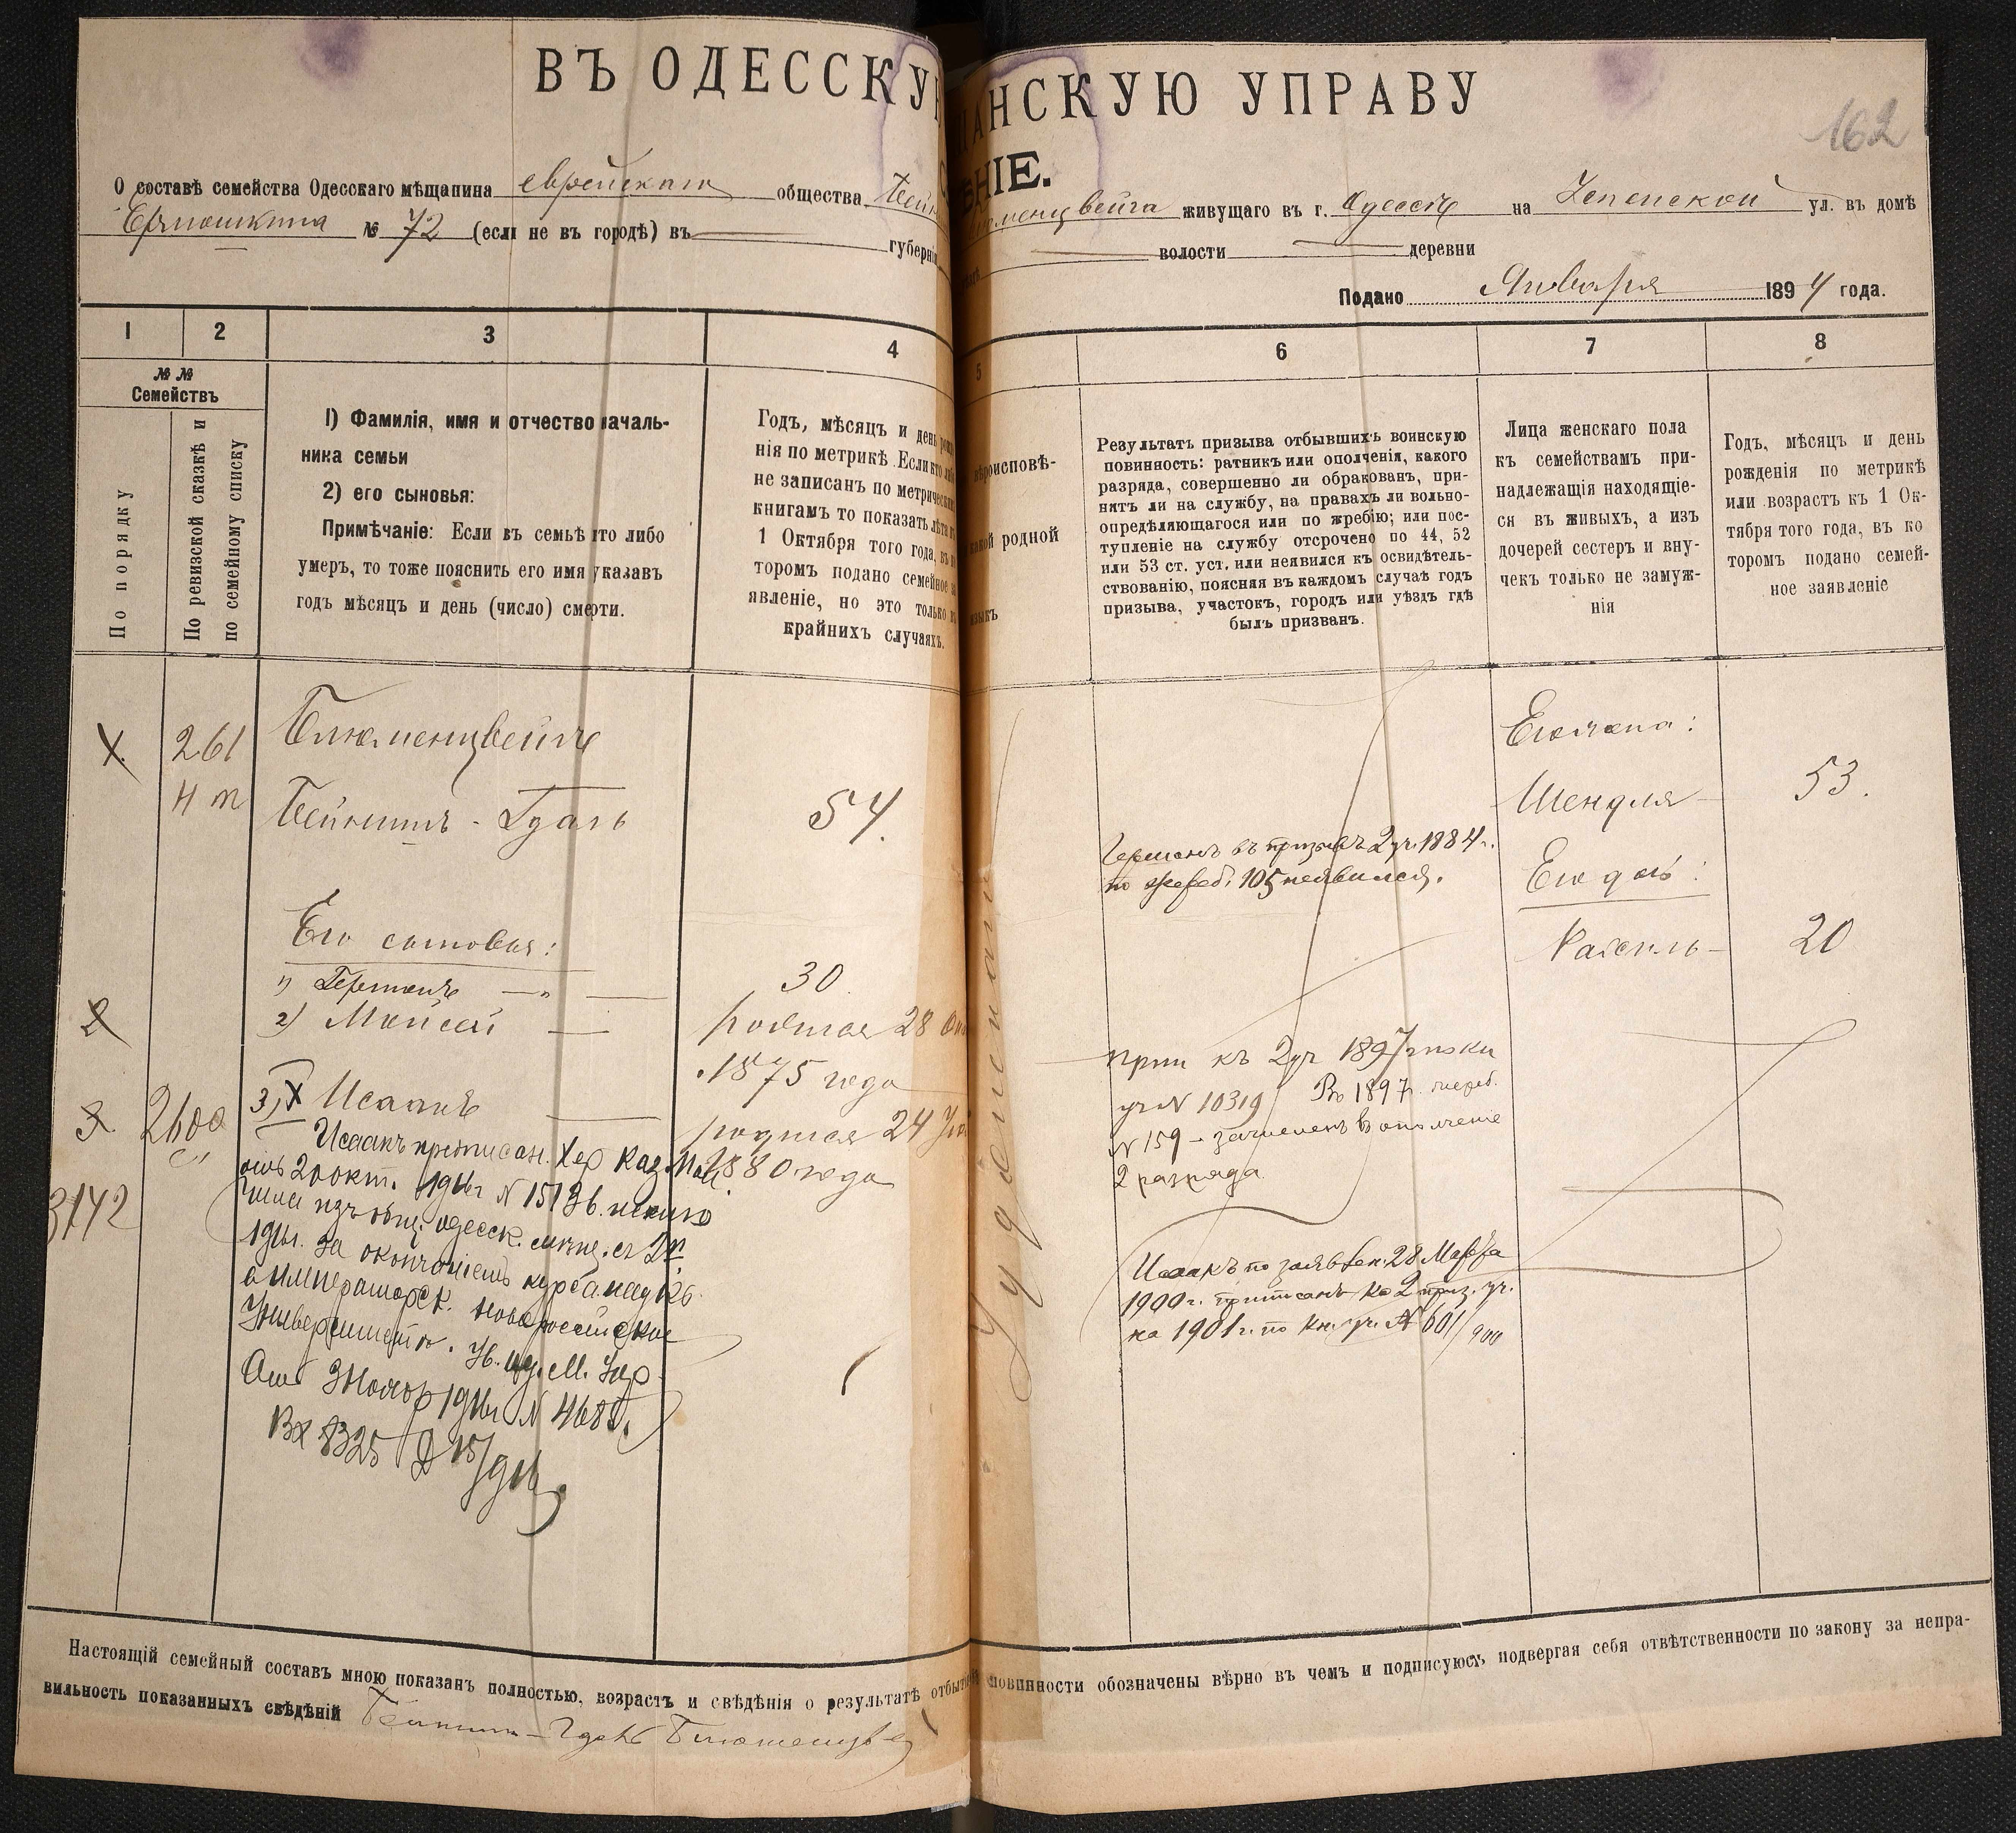 ВЪ ОДЕССКУ АНСКУЮ УПРАВУ
162
НІЕ.
О составѣ семейства Одесскаго мѣщанина еврейскаго общества Бейн
юменцвейга живущаго въ г. Одессѣ на ул. въ домѣ
№ 72 (если не въ городѣ) въ губерні
волости деревни
Подано Января 1894 года.
1 2 3 4 5 6 7 8
№ №
Семействъ
По порядку
По ревизской сказкѣ и
по семейному списку
1) Фамилія, имя и отчество началь-
ника семьи
2) его сыновья:
Примѣчаніе: Если въ семьѣ кто либо
умеръ, то тоже пояснить его имя указавъ
годъ мѣсяцъ и день (число) смерти.
Годъ, мѣсяцъ и день рожд
нія по метрикѣ. Если кто либ
не записанъ по метрическ
книгамъ то показать лѣта к
1 Октября того года, въ к
торомъ подано семейное за
явленіе, но это только в
крайнихъ случаяхъ.
вѣроисповѣ-
какой родной
языкъ
Результатъ призыва отбывшихъ воинскую
повинность: ратникъ или ополченія, какого
разряда, совершенно ли обракованъ, при-
нятъ ли на службу, на правахъ ли вольно-
опредѣляющагося или по жребію; или пос-
тупленіе на службу отсрочено по 44, 52
или 53 ст. уст. или неявился къ освидѣтель-
ствованію, поясняя въ каждомъ случаѣ годъ
призыва, участокъ, городъ или уѣздъ гдѣ
былъ призванъ.
Лица женскаго пола
къ семействамъ при-
надлежащія находящіе-
ся въ живыхъ, а изъ
дочерей сестеръ и вну-
чекъ только не замуж-
нія
Годъ, мѣсяцъ и день
рожденія по метрикѣ
или возрастъ къ 1 Ок-
тября того года, въ ко
торомъ подано семей-
ное заявленіе
261
Блюменцвейгъ
Бейнишъ - Гдаль
54.
Его сыновья:
1) Германъ 30
2) Мойсей родился 28
1875 года
2600
3) Исаакъ родился 24
1880 года
3142
Исаакъ
20 окт. 1911 г N
изъ общ. одесск. мѣщ. съ
1911 г. за окончаніемъ курса наукъ
Императорск. Новороссійском
Университетѣ.
N 468
Вх 1325
Іудейскаго
Германъ въ призывѣ 2 уч. 1884 г.
по жреб. 105 неявился.
прип къ 2 уч 1897
уч N 10319 Въ 1897 г. жереб.
N 159 - зачисленъ въ ополченіе
2 разряда
Исаакъ по заявлен. 28 Марта
1900 г. приписанъ ко 2 приз. уч.
на 1901 г. по кн. уч. № 601/900
Его жена:
Шендля - 53.
Его дочь:
Рахиль - 20
Настоящій семейный составъ мною показанъ полностью, возрастъ и свѣдѣнія о результатѣ отбыт повинности обозначены вѣрно въ чемъ и подписуюсь, подвергая себя отвѣтственности по закону за непра-
вильность показанныхъ свѣдѣній Бейнишъ - Гдаль Блюменцвейг